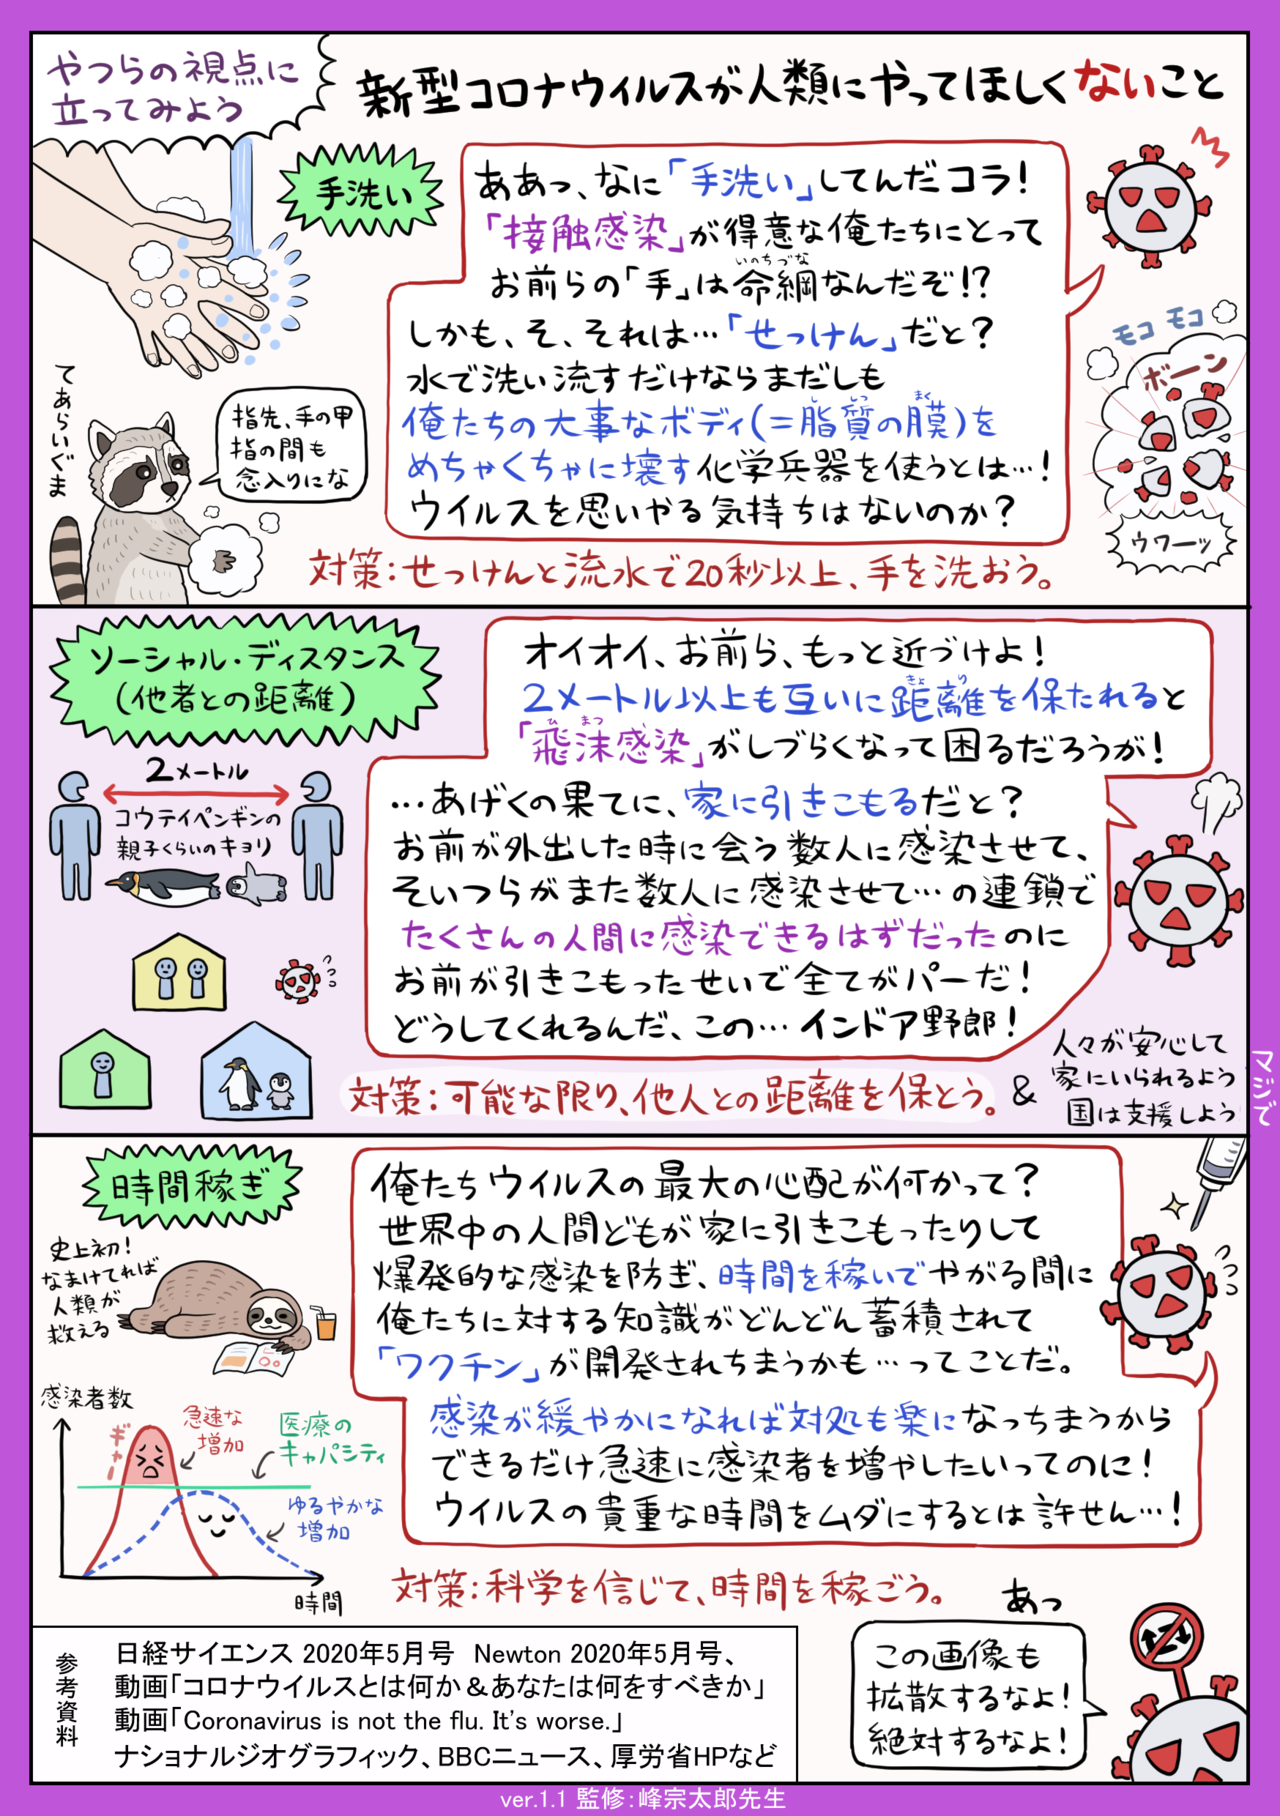 やつらの視点に
立ってみよう
新型コロナウィルスが人類にやってほしくないこと
手洗い
ああっ、なに「手洗い」してんだコラ!
「接触感染」が得意な俺たちにとって
お前らの「手」は命綱なんだぞ!?
いのちづな
しかも、そ、それは…「せっけん」だと?
水で洗い流すだけならまだしも
俺たちの大事なボディ(=脂質の膜)を
し しつ まく
めちゃくちゃに壊す化学兵器を使うとは…!
ウイルスを思いやる気持ちはないのか?
モコ モコ
ボーン
ウワーッ
てあらいぐま
指先、手の甲
指の間も
念入りにな
対策:せっけんと流水で20秒以上、手を洗おう。
ソーシャル・ディスタンス
(他者との距離)
2メートル
コウテイペンギンの
親子くらいのキョリ
オイオイ、お前ら、もっと近づけよ!
2メートル以上も互いに距離を保たれると
きょ り
「飛沫感染」がしづらくなって困るだろうが!
ひ まつ
…あげくの果てに、家に引きこもるだと?
お前が外出した時に会う数人に感染させて、
そいつらがまた数人に感染させて…の連鎖で
たくさんの人間に感染できるはずだったのに
お前が引きこもったせいで全てがパーだ!
どうしてくれるんだ、この…インドア野郎!
対策:可能な限り、他人との距離を保とう。
&
人々が安心して
家にいられるよう
国は支援しよう
マジで
時間稼ぎ
史上初!
なまけてれば
人類が
救える
俺たちウイルスの最大の心配が何かって?
世界中の人間どもが家に引きこもったりして
爆発的な感染を防ぎ、時間を稼いでやがる間に
俺たちに対する知識がどんどん蓄積されて
「ワクチン」が開発されちまうかも…ってことだ。
感染が緩やかになれば対処も楽になっちまうから
できるだけ急速に感染者を増やしたいってのに!
ウイルスの貴重な時間をムダにするとは許せん…!
感染者数
ギャー
急速な
増加
医療の
キャパシティ
ゆるやかな
増加
時間
対策:科学を信じて、時間を稼ごう。
あっ
この画像も
拡散するなよ!
絶対するなよ!
参考資料
日経サイエンス 2020年5月号 Newton 2020年5月号、
動画「コロナウイルスとは何か&あなたは何をすべきか」
動画「Coronavirus is not the flu. It's worse.」
ナショナルジオグラフィック、BBCニュース、厚労省HPなど
ver.1.1 監修:峰宗太郎先生